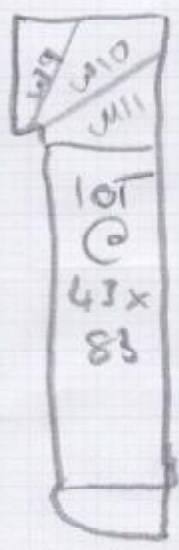 W9
W10
W11
10T
@
43x
83